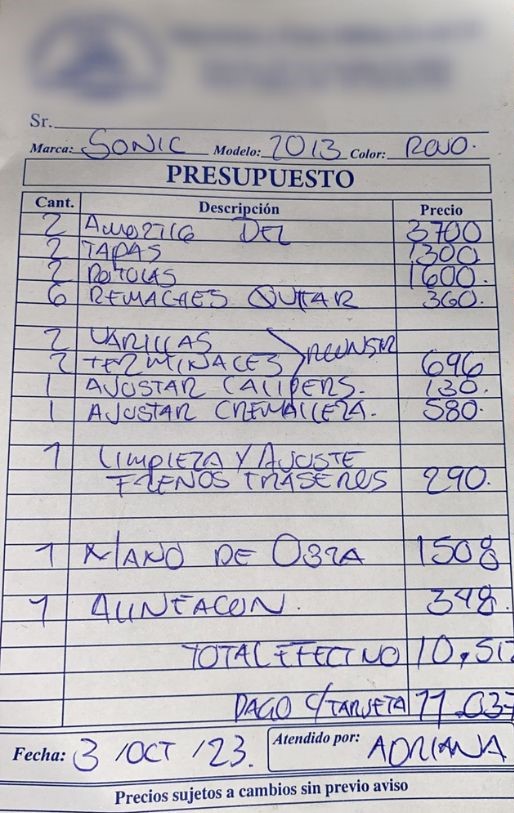 Sr.
Marca: SONIC Modelo: 2013 Color: ROJO.
PRESUPUESTO
Cant. Descripción Precio
2 AMORTIG DEL 3700
2 TAPAS 1300
2 ROTULAS 1600.
6 REMACHES QUITAR 360.
2 VARILLAS
2 TERMINALES RECONSTR 696
1 AJUSTAR CALIPERS. 130.
1 AJUSTAR CREMALLERA. 580.
1 LIMPIEZA Y AJUSTE
FRENOS TRASEROS 290.
1 MANO DE OBRA 1508
1 ALINEACON. 348.
TOTAL EFECTIVO 10,512
PAGO C/TARJETA 11.037
Fecha: 3 /OCT /23. Atendido por: ADRIANA
Precios sujetos a cambios sin previo aviso